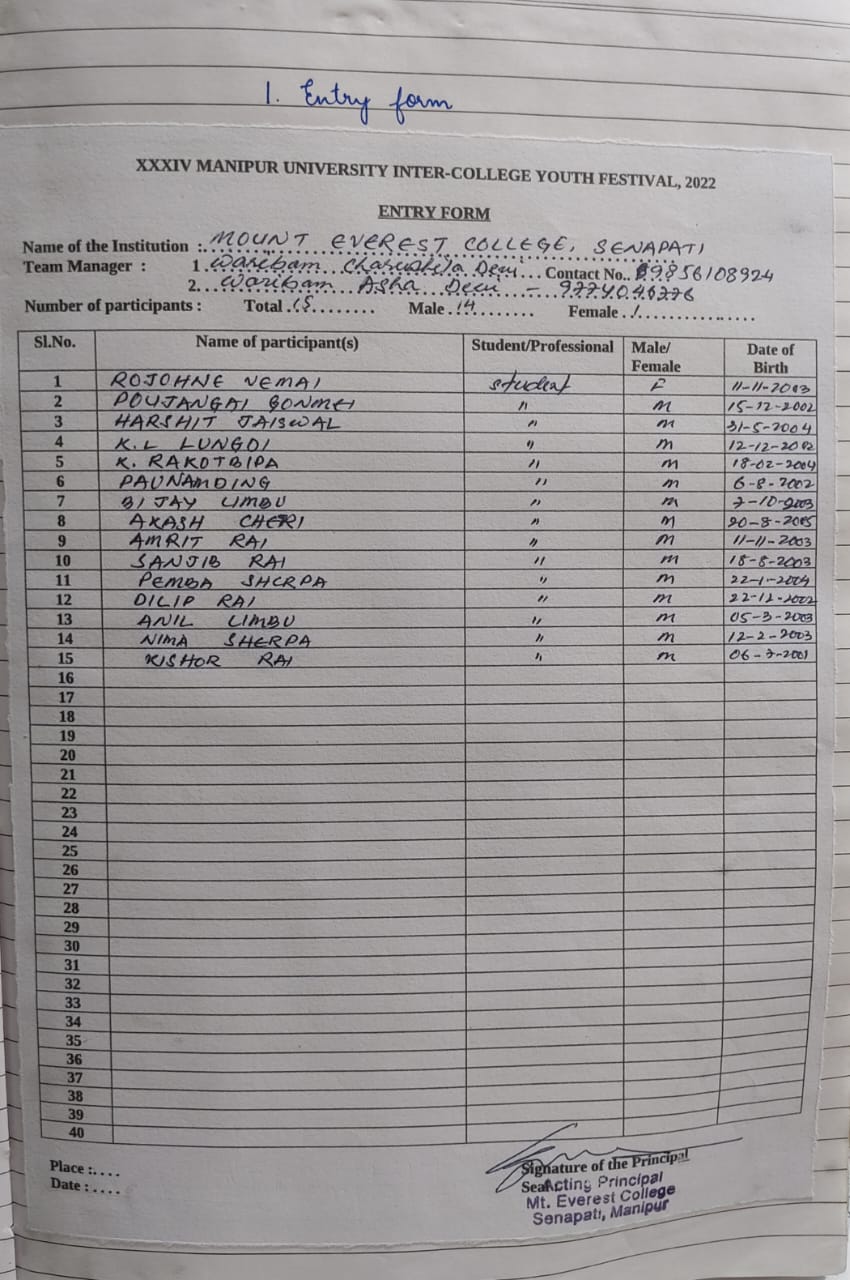 1. Entry form
XXXIV MANIPUR UNIVERSITY INTER-COLLEGE YOUTH FESTIVAL, 2022
ENTRY FORM
Name of the Institution :. MOUNT EVEREST COLLEGE, SENAPATI
Team Manager : 1. Waribam Charushila Devi... Contact No.. 89856108924
2... Waribam Asha Devi -
Number of participants : Total .15........ Male .14......... Female .1..............
Sl.No. Name of participant(s) Student/Professional Male/ Female Date of Birth
1 ROJOHNE NEMAI student F 11-11-2003
2 POUJANGAI GONMEI " M 15-12-2002
3 HARSHIT JAISWAL " M 31-5-2004
4 K.L LUNGOI " M 12-12-2002
5 K. RAKOTBIPA " M 18-02-2004
6 PAUNAMDING " M 6-8-2002
7 BIJAY LIMBU " M 7-10-2003
8 AKASH CHERI " M 20-8-2005
9 AMRIT RAI " M 11-11-2003
10 SANJIB RAI " M 18-8-2003
11 PEMBA SHERPA " M 22-1-2004
12 DILIP RAI " M 22-12-2002
13 ANIL LIMBU " M 05-3-2003
14 NIMA SHERPA " M 12-2-2003
15 KISHOR RAI " M 06-7-2001
16
17
18
19
20
21
22
23
24
25
26
27
28
29
30
31
32
33
34
35
36
37
38
39
40
Place :....
Date :....
Signature of the Principal
Seal Acting Principal
Mt. Everest College
Senapati, Manipur